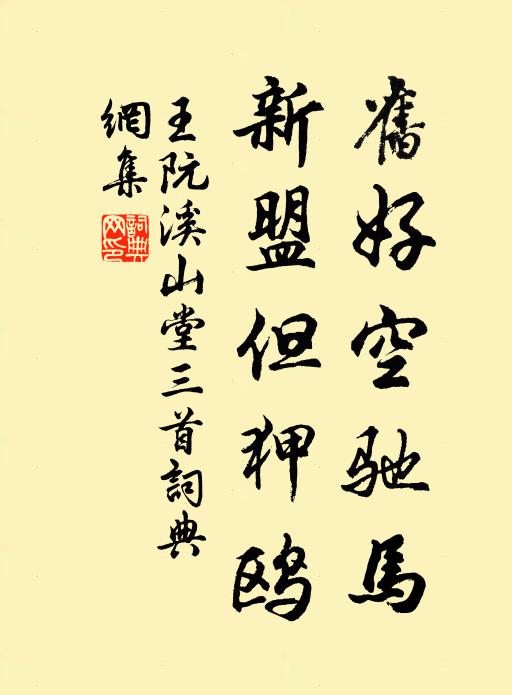 舊好空馳馬
新盟但狎鷗
王阮溪山堂三首詞典
網集
詞典網印